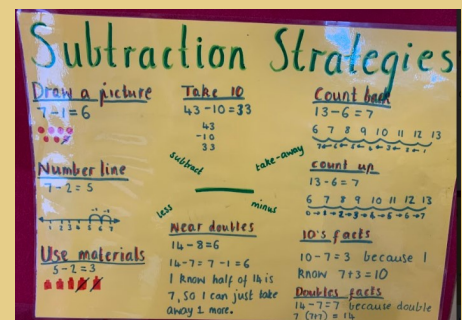 Subtraction Strategies
Draw a picture
7-1=6
Number line
7-2=5
1 2 3 4 5 6 7
Use materials
5-2=3
Take 10
43-10=33
43
-10
33
subtract
take-away
less
minus
Near doubles
14-8=6
14-7=7-1=6
I know half of 14 is
7, so I can just take
away 1 more.
Count back
13-6=7
6 7 8 9 10 11 12 13
count up
13-6=7
6 7 8 9 10 11 12 13
0→1→2→3→4→5→6→7
10's facts
10-7=3 because I
know 7+3=10
Doubles facts
14-7=7 because double
7 (7+7) = 14